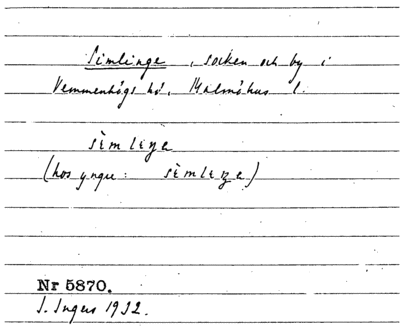 Simlinge, socken och by i
Vemmenhögs hd, Malmöhus l.
sìmlıŋe
(hos yngre: sìmlıŋe)
Nr 5870.
I. Ingers 1932.